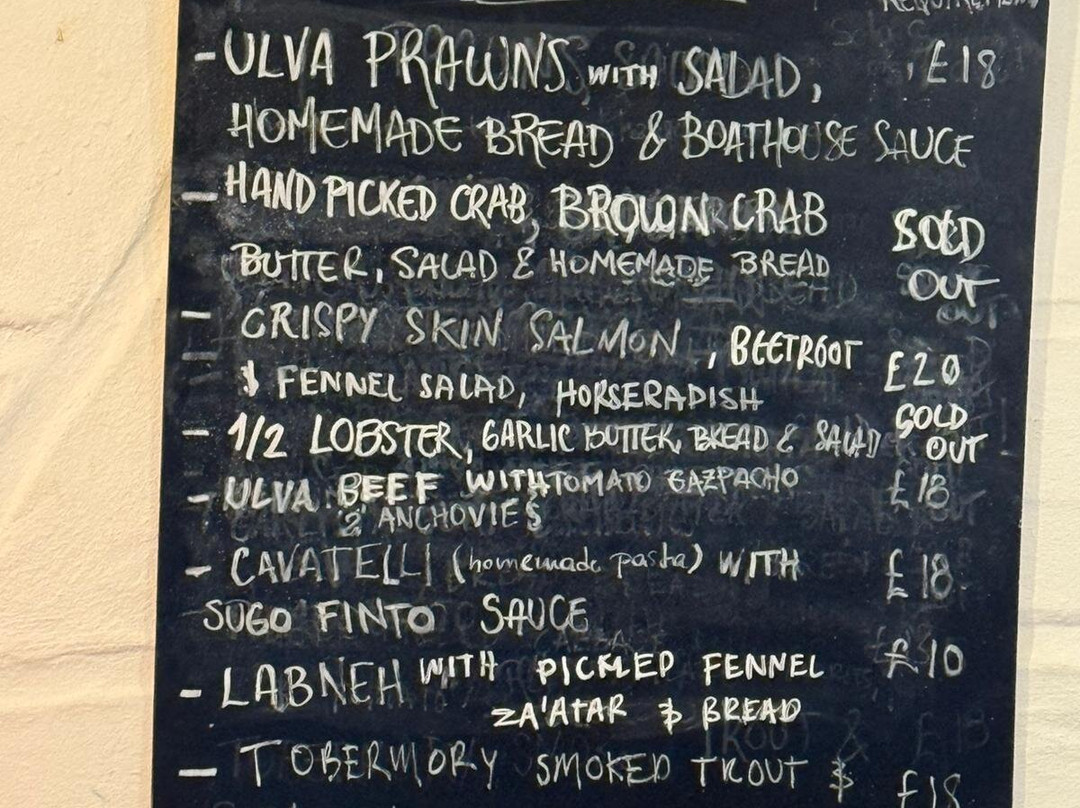 - ULVA PRAWNS WITH SALAD, £18
HOMEMADE BREAD & BOATHOUSE SAUCE
- HAND PICKED CRAB, BROWN CRAB SOLD
BUTTER, SALAD & HOMEMADE BREAD OUT
- CRISPY SKIN SALMON, BEETROOT £20
& FENNEL SALAD, HORSERADISH
- 1/2 LOBSTER, GARLIC BUTTER, BREAD & SALAD SOLD OUT
- ULVA BEEF WITH TOMATO GAZPACHO £18
& ANCHOVIES
- CAVATELLI (homemade pasta) WITH £18
SUGO FINTO SAUCE
- LABNEH WITH PICKLED FENNEL £10
ZA'ATAR & BREAD
- TOBERMORY SMOKED TROUT & £18